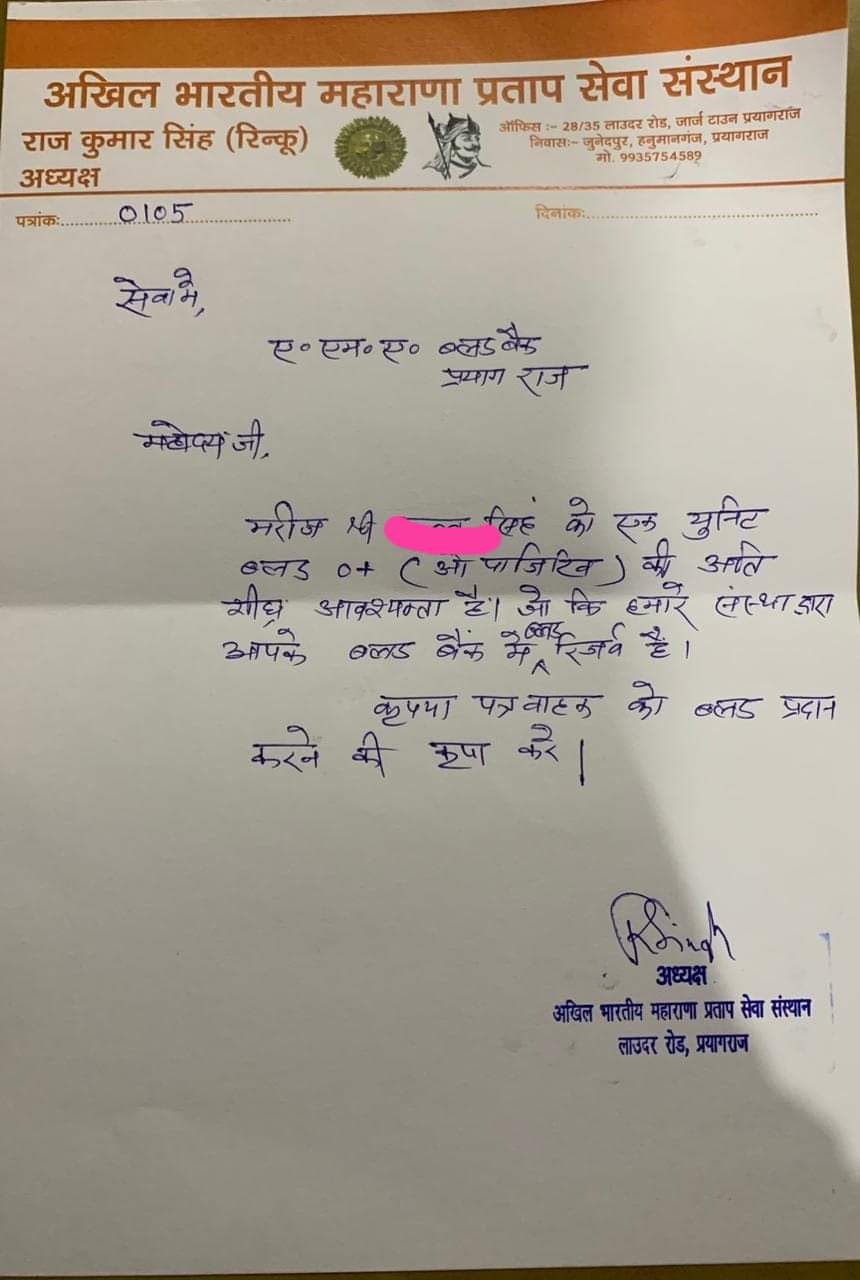 अखिल भारतीय महाराणा प्रताप सेवा संस्थान
राज कुमार सिंह (रिन्कू)
अध्यक्ष
ऑफिस :- 28/35 लाउदर रोड, जार्ज टाउन प्रयागराज
निवासः- जुनेदपुर, हनुमानगंज, प्रयागराज
मो. 9935754589
पत्रांकः 0105 दिनांकः
सेवा मे,
ए० एम० ए० ब्लड बैंक
प्रयाग राज
महोदय जी,
मरीज श्री सिंह को एक युनिट
ब्लड o+ (ओ पाजिटिव) की अति
शीघ्र आवश्यक्ता है। जो कि हमारे संस्था द्वारा
आपके ब्लड बैंक मे ब्लड रिजर्व है।
कृपया पत्र वाहक को ब्लड प्रदान
करने की कृपा करे।
RSingh
अध्यक्ष
अखिल भारतीय महाराणा प्रताप सेवा संस्थान
लाउदर रोड, प्रयागराज